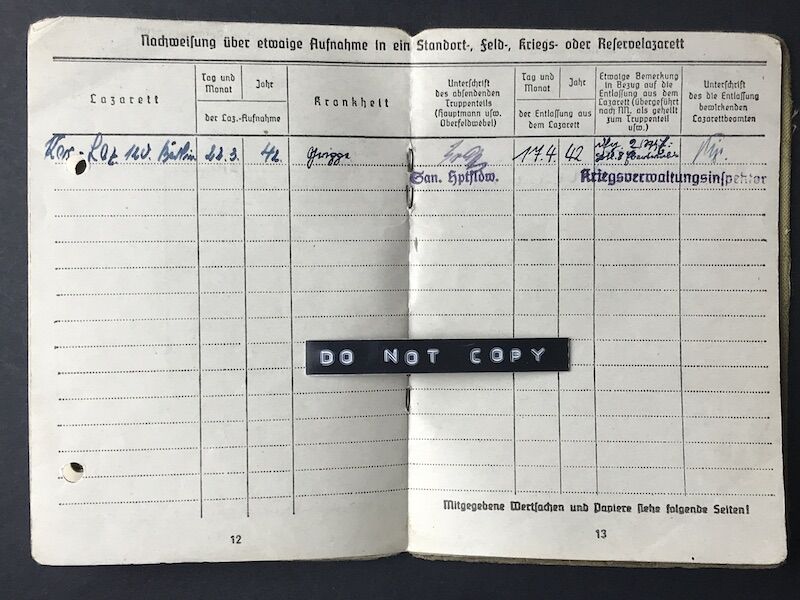 Nachweisung über etwaige Aufnahme in ein Standort-, Feld-, Kriegs- oder Reservelazarett
Lazarett
Tag und Monat
Jahr
der Laz.-Aufnahme
Krankheit
Unterschrift
des absendenden
Truppenteils
(Hauptmann usw.
Oberfeldwebel)
Tag und
Monat
Jahr
der Entlassung aus
dem Lazarett
Etwaige Bemerkung
in Bezug auf die
Entlassung aus dem
Lazarett (übergeführt
nach NN. als geheilt
zum Truppenteil
usw.)
Unterschrift
des die Entlassung
bewirkenden
Lazarettbeamten
Laz. 120. 22.3. 42. Grippe 17.4. 42
San. Hptfldw. Kriegsverwaltungsinspektor
DO NOT COPY
Mitgegebene Wertsachen und Papiere siehe folgende Seiten!
12
13